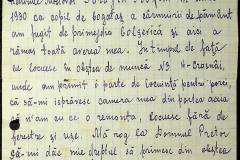 1930 ca copil de bogătaș a cârmuirii de pământ
am fugit de primejdia Colgerică și aici a
rămas toată averea mea. În timpul de față
eu locuesc în obștea de muncă N3 4-Crasnăi,
unde am primit o parte de locuință pentru porci,
că să-mi isprăvesc camera mea din partea aceia
că n'am eu ce o remonta, locuesc fără de
ferestre și uși. Mă rog la Domnul Pretor
să-mi dăc mie dreptul să primesc din obștea